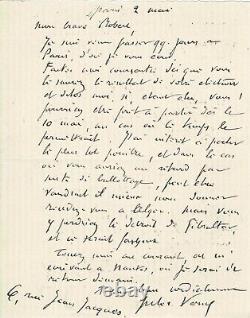 Paris 2 mai
mon brave Robert
Je suis venu passer qq. jours à
Paris, d'où je vous écris.
Faites moi connaître dès que vous
le saurez le résultat de votre élection
et dites moi si, étant élu, vous
pourriez être prêt à partir dès le
10 mai, au cas où le temps le
permettrait. J'ai intérêt à partir
le plus tôt possible, et dans le cas
où vous auriez un retard par
suite de ballottage, peut être
vaudrait il mieux nous donner
rendez-vous à Alger. Mais vous
y perdriez le détroit de Gibraltar
et ce serait fâcheux
Tenez moi au courant en m'
écrivant à Nantes, où je serai de
retour demain.
bien cordialement
Jules Verne
6, rue Jean Jacques